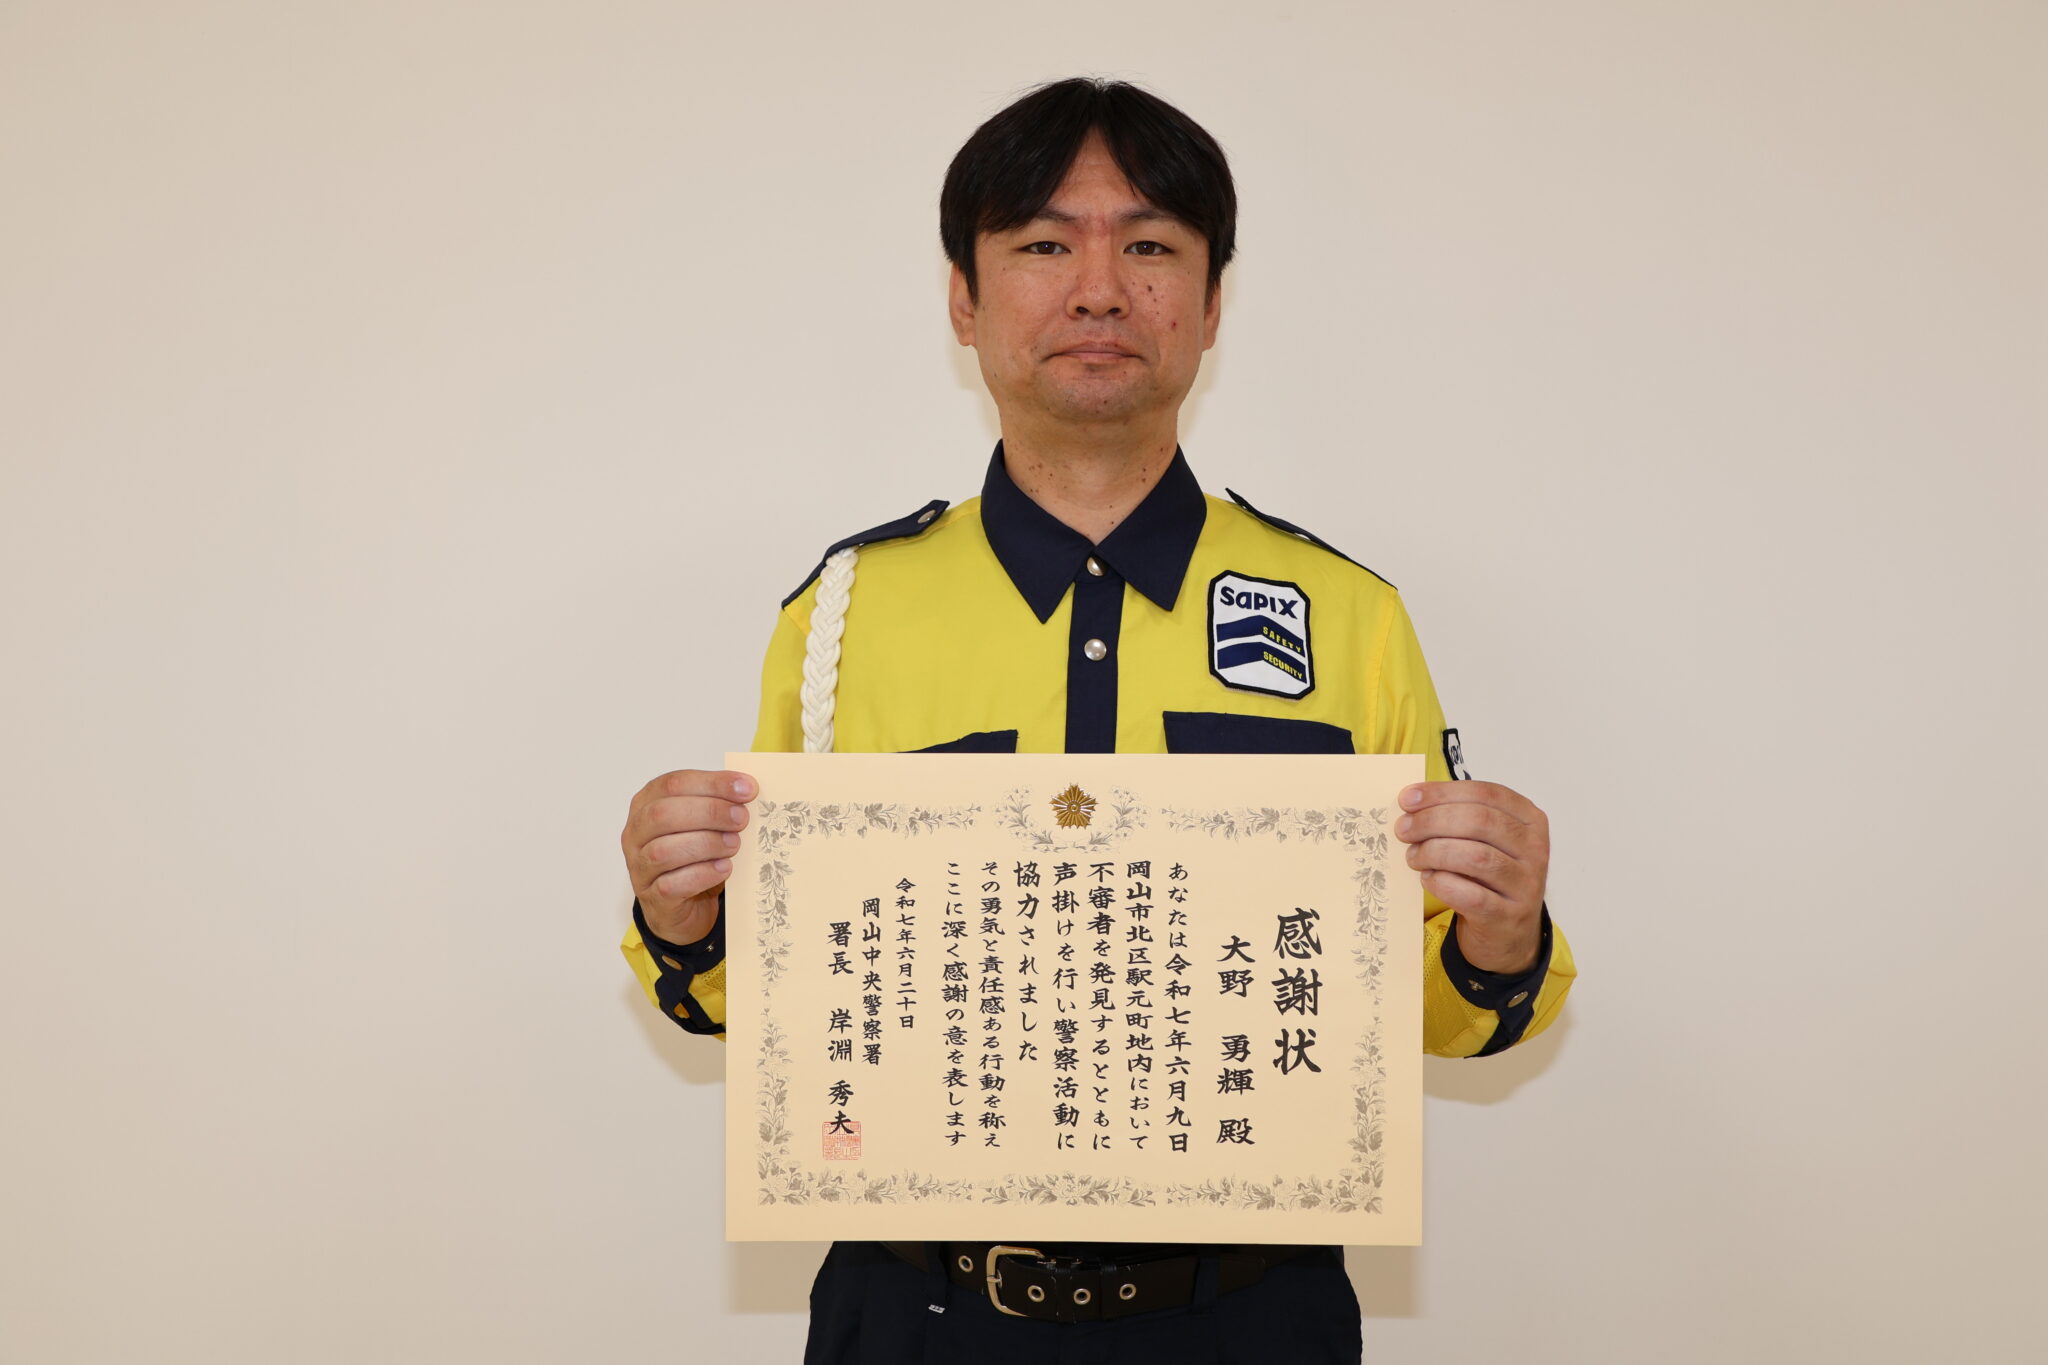 sapix
SAFETY
SECURITY
感謝状
大野 勇輝 殿
あなたは令和七年六月九日
岡山市北区駅元町地内において
不審者を発見するとともに
声掛けを行い警察活動に
協力されました
その勇気と責任感ある行動を称え
ここに深く感謝の意を表します
令和七年六月二十日
岡山中央警察署
署長 岸淵 秀夫